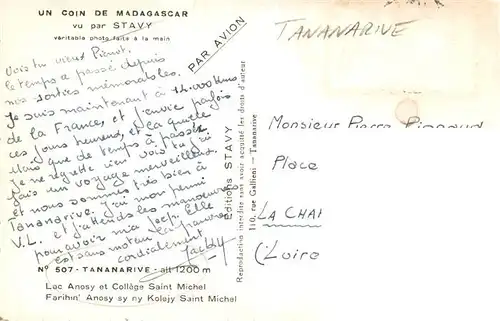 UN COIN DE MADAGASCAR
vu par STAVY
véritable photo faite à la main
PAR AVION
TANANARIVE
Vois tu vieux Pierrot.
le temps a passé depuis
nos sorties mémorables.
Je suis maintenant à 12.000 Kms
de la France, et j'envie parfois
ces jours heureux, et la quille
Mais que de temps à passer
Je ne regrette rien vois tu j'ai
fais un voyage merveilleux
et nous sommes très bien à
Tananarive. J'ai mon permi
V.L. et j'attends les manoeuvres
pour avoir ma jeep. Elle
est sans moteur la pauvre
cordialement
Jacky
Editions STAVY
110, rue Gallieni - Tananarive
Reproduction interdite sans avoir acquitté les droits d'auteur
Monsieur Pierre
Place
LA
(Loire
N° 507 - TANANARIVE - alt 1200 m
Lac Anosy et Collège Saint Michel
Farihin' Anosy sy ny Kolejy Saint Michel